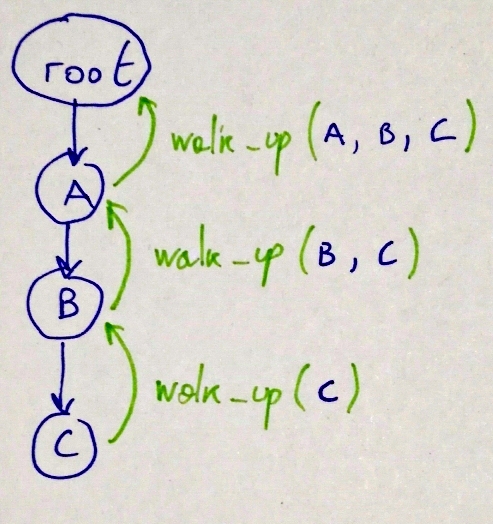 root
walk_up (A, B, C)
A
walk_up (B, C)
B
walk_up (C)
C